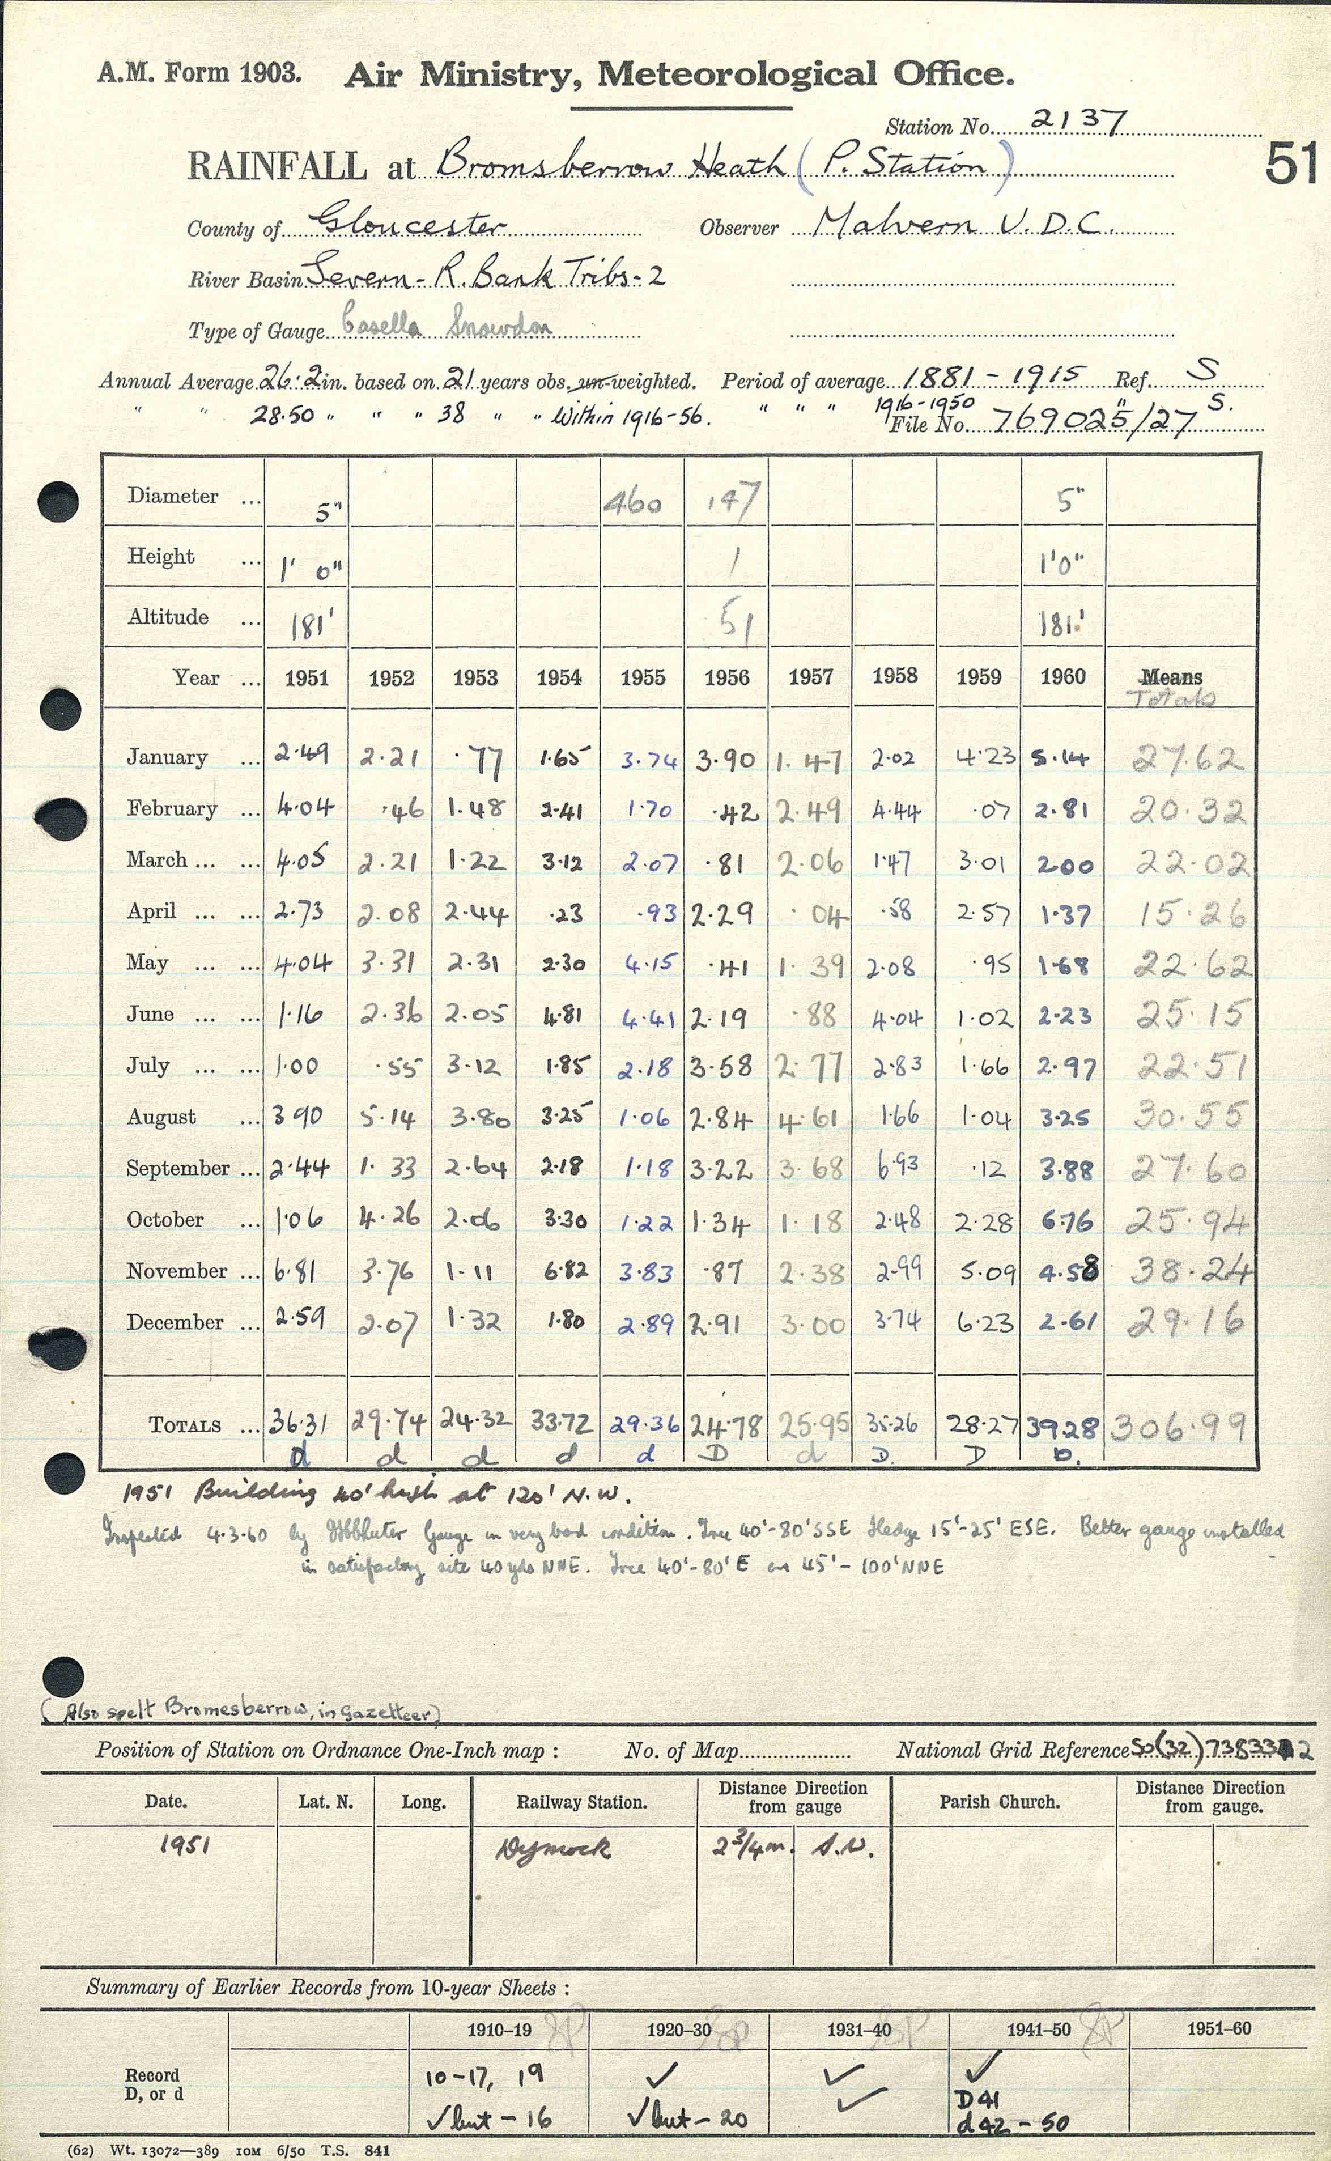 A.M. Form 1903. Air Ministry, Meteorological Office.
Station No. 2137
51
RAINFALL at Bromsberrow Heath (P. Station)
County of Gloucester Observer Malvern U.D.C.
River Basin Severn - R. Bank Tribs - 2
Type of Gauge Casella Snowdon
Annual Average 26.2 in. based on 21 years obs. un-weighted. Period of average 1881 - 1915 Ref. S
" " 28.50 " " " 38 " " Within 1916-56. " " " 1916-1950 " S.
File No. 769025/27
Diameter ... 5" 460 147 5"
Height ... 1' 0" 1 1'0"
Altitude ... 181' 51 181'
Year ... 1951 1952 1953 1954 1955 1956 1957 1958 1959 1960 Means
Totals
January ... 2.49 2.21 .77 1.65 3.74 3.90 1.47 2.02 4.23 5.14 27.62
February ... 4.04 .46 1.48 2.41 1.70 .42 2.49 4.44 .07 2.81 20.32
March ... ... 4.05 2.21 1.22 3.12 2.07 .81 2.06 1.47 3.01 2.00 22.02
April ... ... 2.73 2.08 2.44 .23 .93 2.29 .04 .58 2.57 1.37 15.26
May ... ... 4.04 3.31 2.31 2.30 4.15 .41 1.39 2.08 .95 1.68 22.62
June ... ... 1.16 2.36 2.05 4.81 4.41 2.19 .88 4.04 1.02 2.23 25.15
July ... ... 1.00 .55 3.12 1.85 2.18 3.58 2.77 2.83 1.66 2.97 22.51
August ... 3 90 5.14 3.80 3.25 1.06 2.84 4.61 1.66 1.04 3.25 30.55
September ... 2.44 1.33 2.64 2.18 1.18 3.22 3.68 6.93 .12 3.88 27.60
October ... 1.06 4.26 2.06 3.30 1.22 1.34 1.18 2.48 2.28 6.76 25.94
November ... 6.81 3.76 1.11 6.82 3.83 .87 2.38 2.99 5.09 4.58 38.24
December ... 2.59 2.07 1.32 1.80 2.89 2.91 3.00 3.74 6.23 2.61 29.16
TOTALS ... 36.31 29.74 24.32 33.72 29.36 24.78 25.95 35.26 28.27 39.28 306.99
d d d d d D d D. D D.
1951 Building 40' high at 120' N.W.
Inspected 4.3.60 by Gauge in very bad condition. Tree 40'-80' SSE Hedge 15'-25' ESE. Better gauge installed
in satisfactory site 40 yds NNE. Tree 40'-80' E 45' - 100' NNE
(Also spelt Bromesberrow, in Gazetteer)
Position of Station on Ordnance One-Inch map : No. of Map National Grid Reference SO(32)738332
Date. Lat. N. Long. Railway Station. Distance Direction from gauge Parish Church. Distance Direction from gauge.
1951 Dymock 2 3/4 m. S.W.
Summary of Earlier Records from 10-year Sheets :
1910–19 1920–30 1931–40 1941–50 1951–60
Record 10-17, 19 ✓ ✓ ✓
D, or d ✓ but - 16 ✓ but - 20 ✓ D 41
d 42 - 50
(62) Wt. 13072—389 10M 6/50 T.S. 841